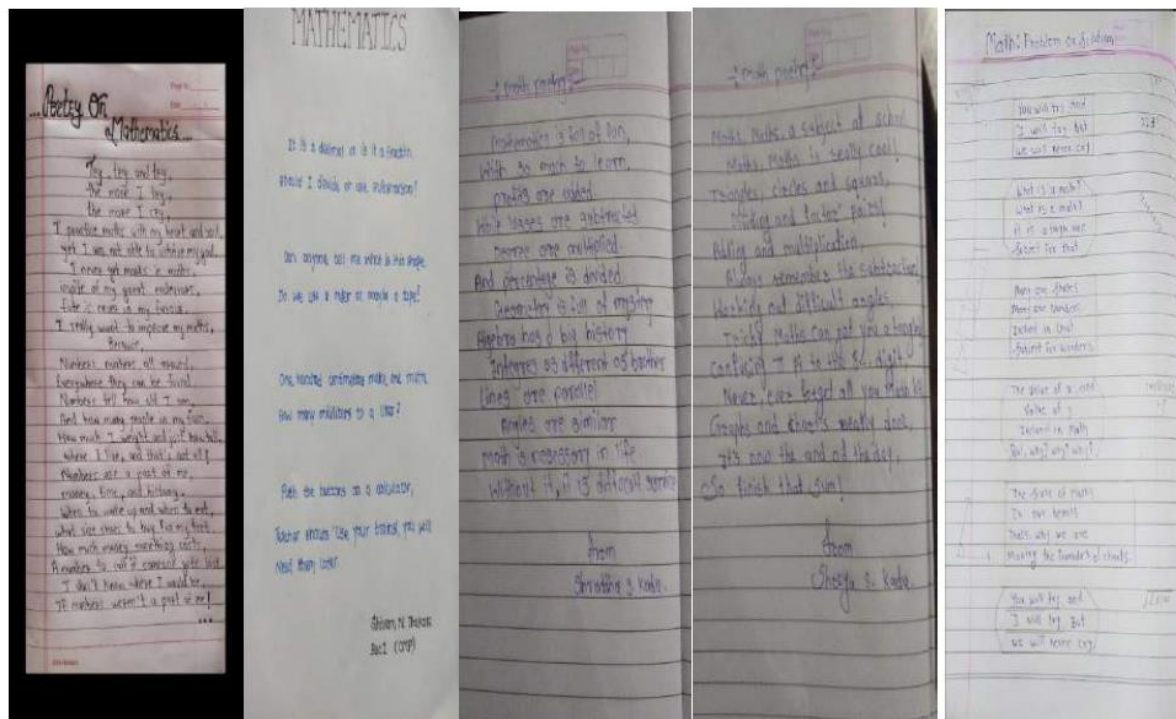 ...Poetry On
Mathematics...
Try, try and try,
the more I try,
the more I cry,
I practice maths with my heart and soul,
yet I was not able to achieve my goal.
I never get marks in maths,
inspite of my great endeavors,
Fate is never in my favour.
I really want to improve my maths,
Because,
Numbers numbers all around,
Everywhere they can be found.
Numbers tell how old I am,
And how many people in my fam,
How much I weight and just how tall,
where I live, and that's not all!
Numbers are a part of me,
money, time, and history,
When to wake up and when to eat,
what size shoes to buy for my feet.
How much money something costs,
A number to call if someone gets lost
I don't know where I would be,
If numbers weren't a part of me!
...
MATHEMATICS
Is it a decimal or is it a fraction
Should I divide or use subtraction?
Can anyone tell me what is this shape
Do we use a ruler or maybe a tape?
One hundred centimetre make one metre
How many mililiters to a liter?
Push the buttons on a calculator,
Teacher shouts "Use your brains, you will
Need them later
Shivam N.
Bsc I (CMP)
-: Math poetry :-
Mathematics is full of Fun,
With so much to learn,
profits are added
While losses are subtracted
Degree are multiplied
And percentage is divided
Geometry is full of mystery
Algebra has a big history
Integres as different as brother
Lines are parallel
Angles are similar
Math is necessary in life
Without it, it is difficult survive
from
Shraddha S. Kadu.
-: Math poetry :-
Maths, Maths, a subject at school
Maths, Maths is really cool!
Triangles, circles and square,
Dividing and factor pairs!
Adding and multiplication,
Always remember the subtraction,
Working out difficult angles,
Tricky Maths can get you a
Confusing Pi to the digit,
Never, ever forget all you
Graphs and neatly done,
It's now the end of the day,
So finish that sum!
from
Shreya S. Kadu.
Math: Problem or Solution
You will try and
I will try But
we will never cry
What is a math?
What is a math?
it is a
Subject for that
Many are
Many are numbers
Included in that
Subject for wonders
The value of x and
Value of y
Included in Math
But, why? why? why?
The of Math
In our
That's why we are
Making the of
You will try and
I will try But
we will never cry